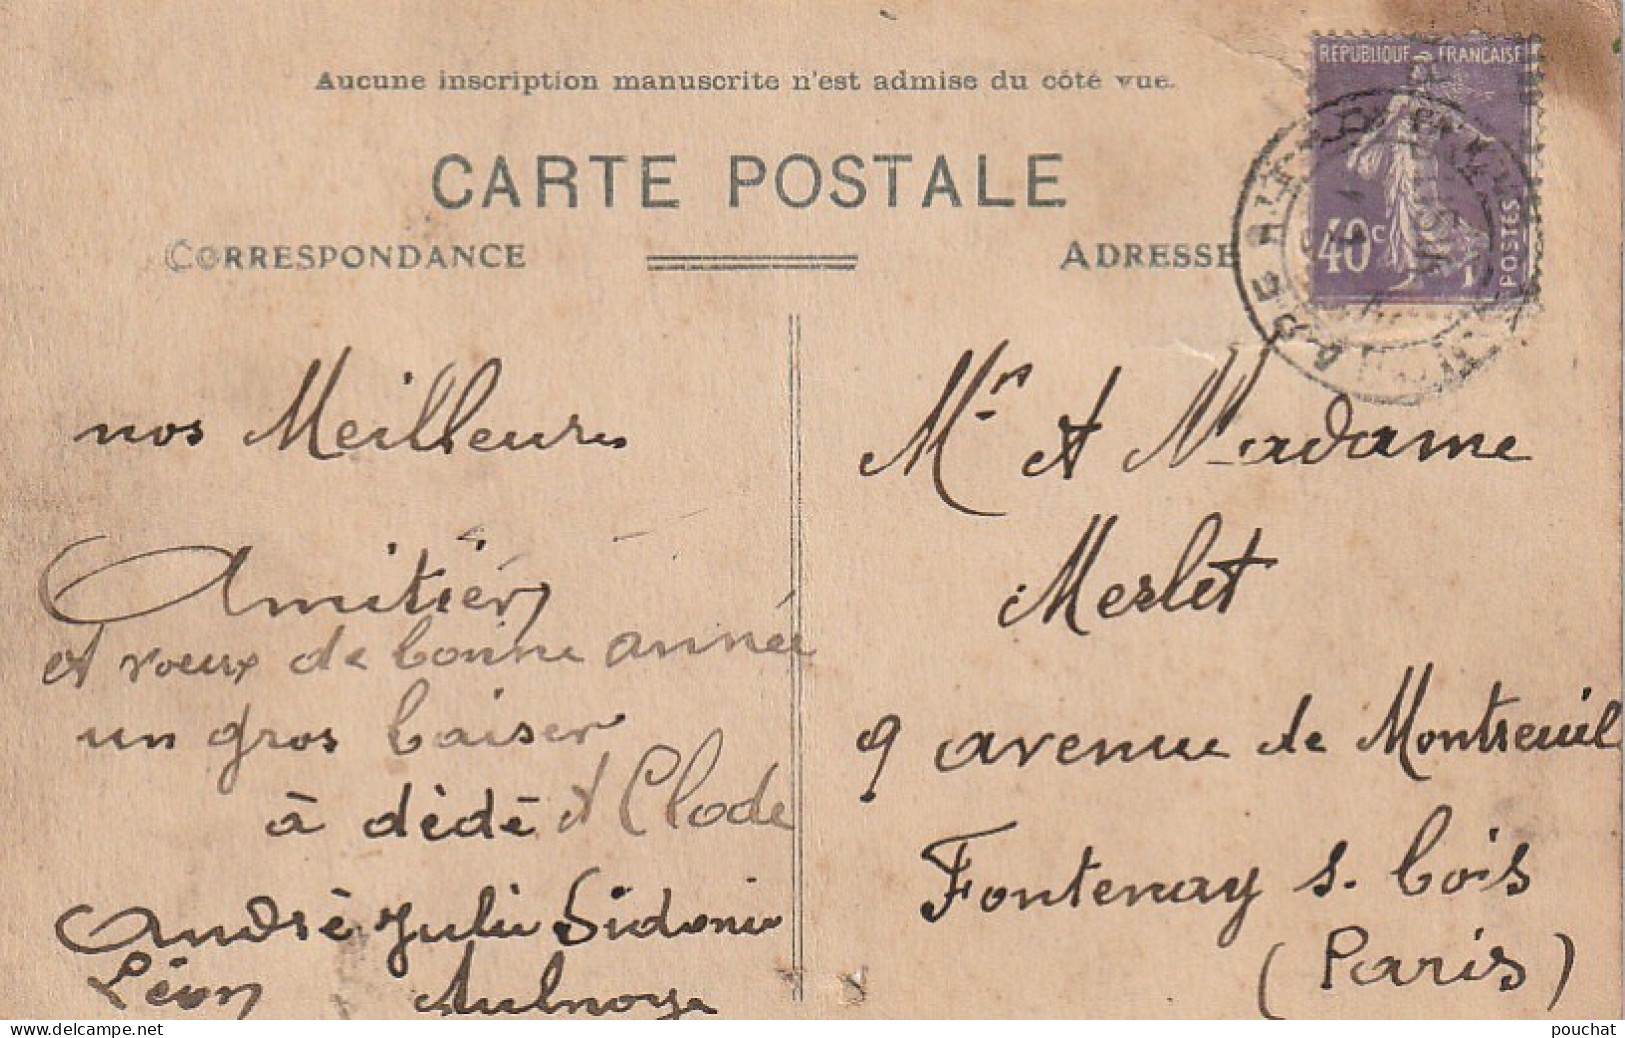 Aucune inscription manuscrite n'est admise du côté vue.
CARTE POSTALE
CORRESPONDANCE
ADRESSE
REPUBLIQUE FRANÇAISE
40c
POSTES
nos Meilleures
Amitiés
et voeux de bonne année
un gros baiser
à dédé et Clode
André Julie Sidonie
Léon Aulnoye
Mr et Madame
Merlet
9 avenue de Montreuil
Fontenay s. bois
(Paris)
pouchat